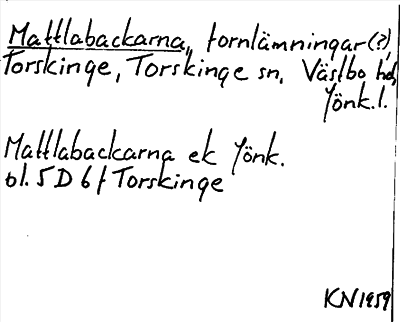 Mattlabackarna, fornlämningar(?),
Torskinge, Torskinge sn, Västbo hd,
Jönk.l.
Mattlabackarna ek Jönk.
bl. 5 D 6 f Torskinge
KN 1959